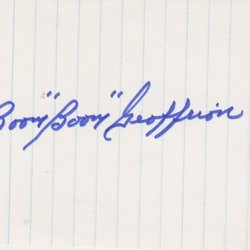 "Boom" Boom" Geoffrion